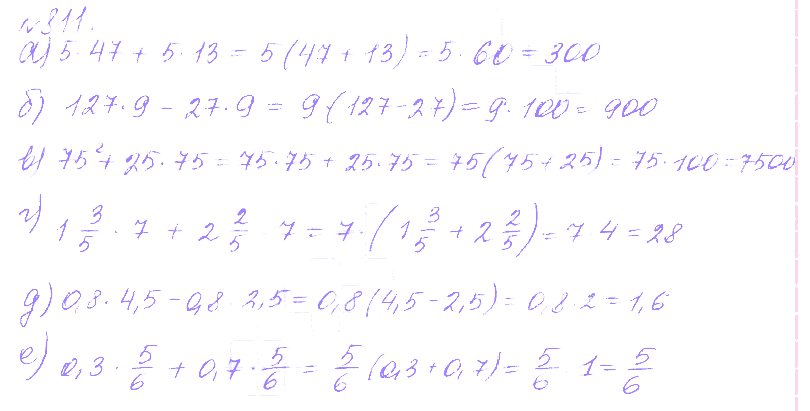 №311.
а) 5·47 + 5·13 = 5(47 + 13) = 5·60 = 300
б) 127·9 - 27·9 = 9·(127-27) = 9·100 = 900
в) 75² + 25·75 = 75·75 + 25·75 = 75(75+25) = 75·100 = 7500
г) 1 3/5 · 7 + 2 2/5 7 = 7·(1 3/5 + 2 2/5) = 7 4 = 28
д) 0,8·4,5 - 0,8 2,5 = 0,8(4,5-2,5) = 0,8·2 = 1,6
е) 0,3 · 5/6 + 0,7 · 5/6 = 5/6 (0,3+0,7) = 5/6 1 = 5/6